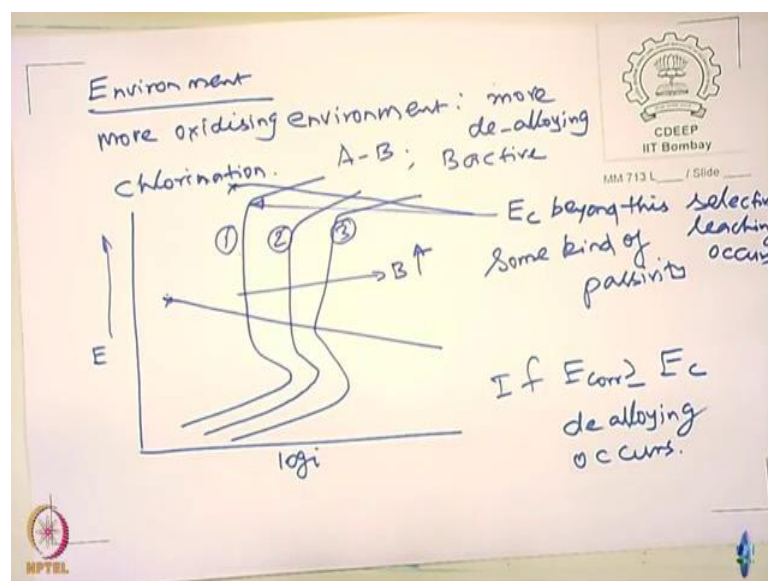 Environment
more oxidising environment: more
de-alloying
Chlorination. A-B; B active
CDEEP
IIT Bombay
MM 713 L___ / Slide ___
Ec beyong this selective
leaching
some kind of occurs
passivity
1 2 3
B↑
E
log i
If Ecorr ≥ Ec
dealloying
occurs.
NPTEL